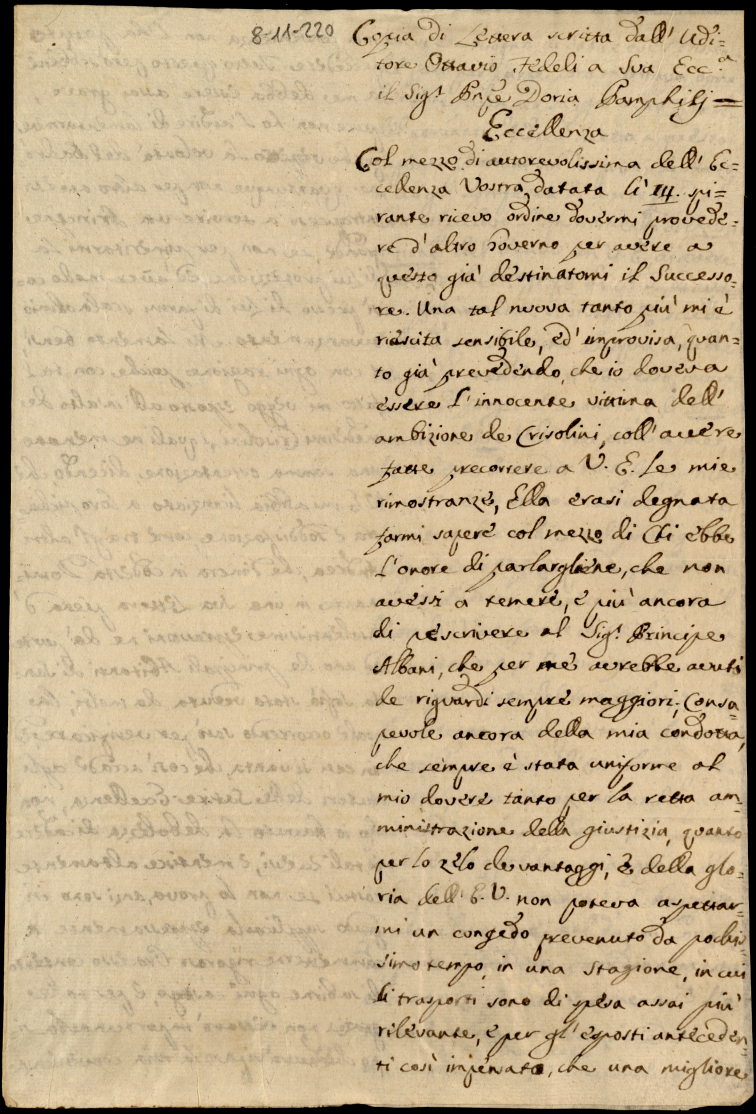 8-11-220
Copia di Lettera scritta dall' Udi=
tore Ottavio Fedeli a Sua Ecc.a
il Sig.r Pnpe Doria Pamphilj =
Eccellenza
Col mezzo di autorevolissima dell' Ec=
cellenza Vostra datata li 14. spi=
rante ricevo ordine dovermi provede=
re d'altro Governo per avere a
questo già destinatomi il Successo=
re. Una tal nuova tanto più mi è
riescita sensibile, ed' improvisa, quan=
to già prevedendo, che io doveva
essere l'innocente vittima dell'
ambizione de Crisolini, coll' avere
fatte precorrere a V. E. le mie
rimostranze, Ella erasi degnata
farmi sapere col mezzo di Chi ebbe
l'onore di parlargliene, che non
avessi a temere, e più ancora
di rescrivere al Sig.r Principe
Albani, che per me avrebbe avuti
de riguardi sempre maggiori; Consa=
pevole ancora della mia condotta,
che sempre è stata uniforme al
mio dovere tanto per la retta am=
ministrazione della giustizia, quanto
per lo zelo de vantaggi, e della glo=
ria dell' E. V. non poteva aspettar=
mi un congedo prevenuto da pochis=
simo tempo, in una Stagione, in cui
li trasporti sono di spesa assai più
rilevante, e per gl' esposti anteceden=
ti così impensato, che una migliore